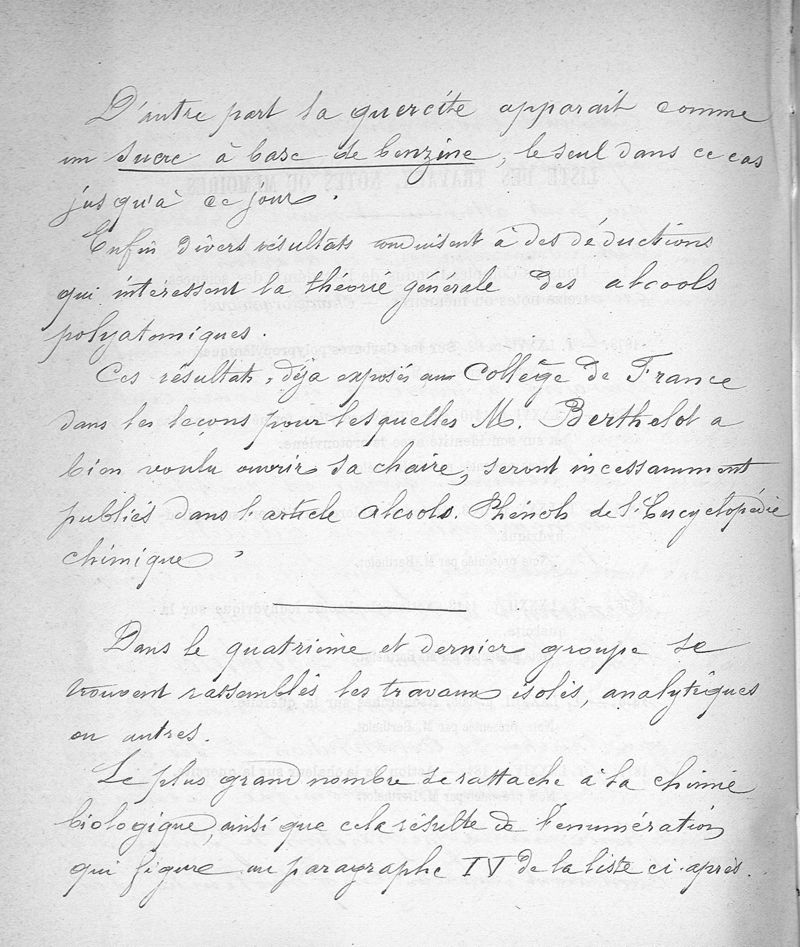 D'autre part la quercite apparait comme
un sucre à base de benzine, le seul dans ce cas
jusqu'à ce jour.
Enfin divers résultats conduisent à des déductions
qui intéressent la théorie générale des alcools
polyatomiques.
Ces résultats, déja exposés au Collège de France
dans les leçons pour lesquelles M. Berthelot a
bien voulu ouvrir sa chaire, seront incessamment
publiés dans l'article alcools. Phénols de l'Encyclopédie
chimique.
Dans le quatrième et dernier groupe se
trouvent rassemblés les travaux isolés, analytiques
ou autres.
Le plus grand nombre se rattache à la chimie
biologique, ainsi que cela résulte de l'enumération
qui figure au paragraphe IV de la liste ci-après.